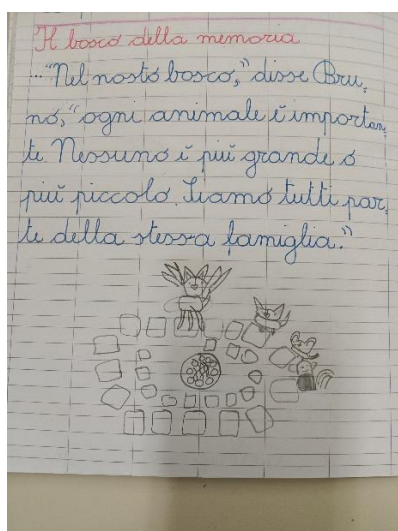 Il bosco della memoria
..."Nel nosto bosco," disse Bru,
no, "ogni animale è importan,
te Nessuno è più grande o
più piccolo. Siamo tutti par,
te della stessa famiglia."